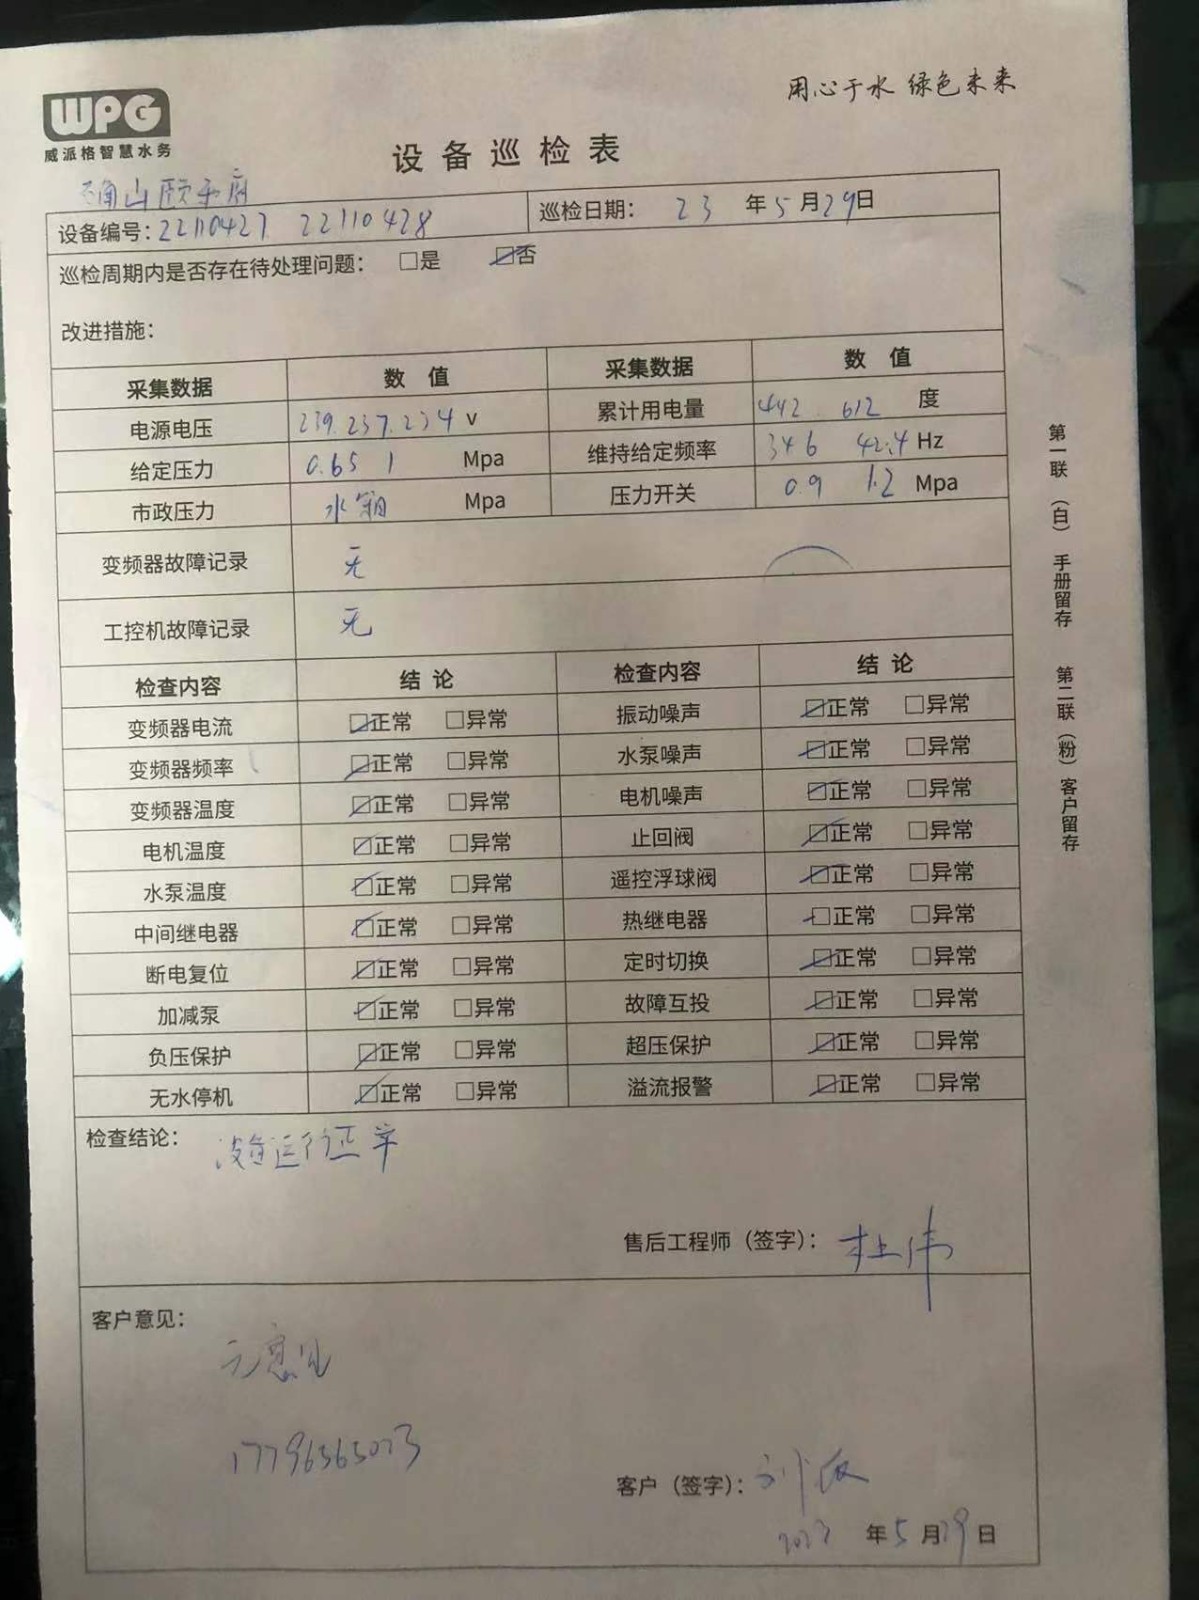 WPG
威派格智慧水务
用心于水 绿色未来
设备巡检表
确山颐和府
设备编号：22110427 22110428 巡检日期： 23 年 5 月 29 日
巡检周期内是否存在待处理问题： □是 ☑否
改进措施：
采集数据 数 值 采集数据 数 值
电源电压 239.237.234 V 累计用电量 442 612 度
给定压力 0.65 1 Mpa 维持给定频率 34.6 42.4 Hz
市政压力 水箱 Mpa 压力开关 0.9 1.2 Mpa
变频器故障记录 无
工控机故障记录 无
检查内容 结 论 检查内容 结 论
变频器电流 ☑正常 □异常 振动噪声 ☑正常 □异常
变频器频率 ☑正常 □异常 水泵噪声 ☑正常 □异常
变频器温度 ☑正常 □异常 电机噪声 ☑正常 □异常
电机温度 ☑正常 □异常 止回阀 ☑正常 □异常
水泵温度 ☑正常 □异常 遥控浮球阀 ☑正常 □异常
中间继电器 ☑正常 □异常 热继电器 ☑正常 □异常
断电复位 ☑正常 □异常 定时切换 ☑正常 □异常
加减泵 ☑正常 □异常 故障互投 ☑正常 □异常
负压保护 ☑正常 □异常 超压保护 ☑正常 □异常
无水停机 ☑正常 □异常 溢流报警 ☑正常 □异常
检查结论： 设备运行正常
售后工程师（签字）： 杜伟
客户意见：
无意见
客户（签字）： 刘
2023 年 5 月 29 日
第一联（白）手册留存 第二联（粉）客户留存